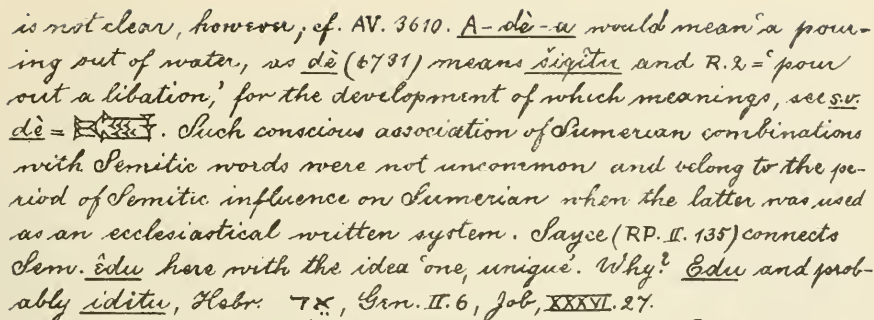 is not clear, however; cf. AV. 3610. A-dè-a would mean 'a pour-
ing out of water, as dè (6731) means šiqîtu and R.2 = 'pour
out a libation,' for the development of which meanings, see s.v.
dè = . Such conscious association of Sumerian combinations
with Semitic words were not uncommon and belong to the pe-
riod of Semitic influence on Sumerian when the latter was used
as an ecclesiastical written system. Sayce (RP. II. 135) connects
Sem. êdu here with the idea 'one, unique'. Why? Edu and prob-
ably iditu, Hebr. אד, Gen. II. 6, Job, XXXVI. 27.